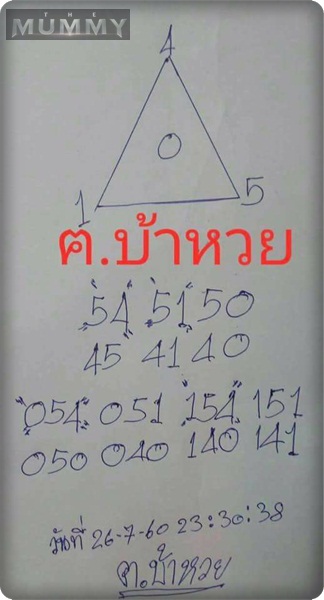 THE
MUMMY
4
0
1 5
ฅ.บ้าหวย
54 51 50
45 41 40
054 051 154 151
050 040 140 141
วันที่ 26-7-60 23:30:38
ฅ.บ้าหวย